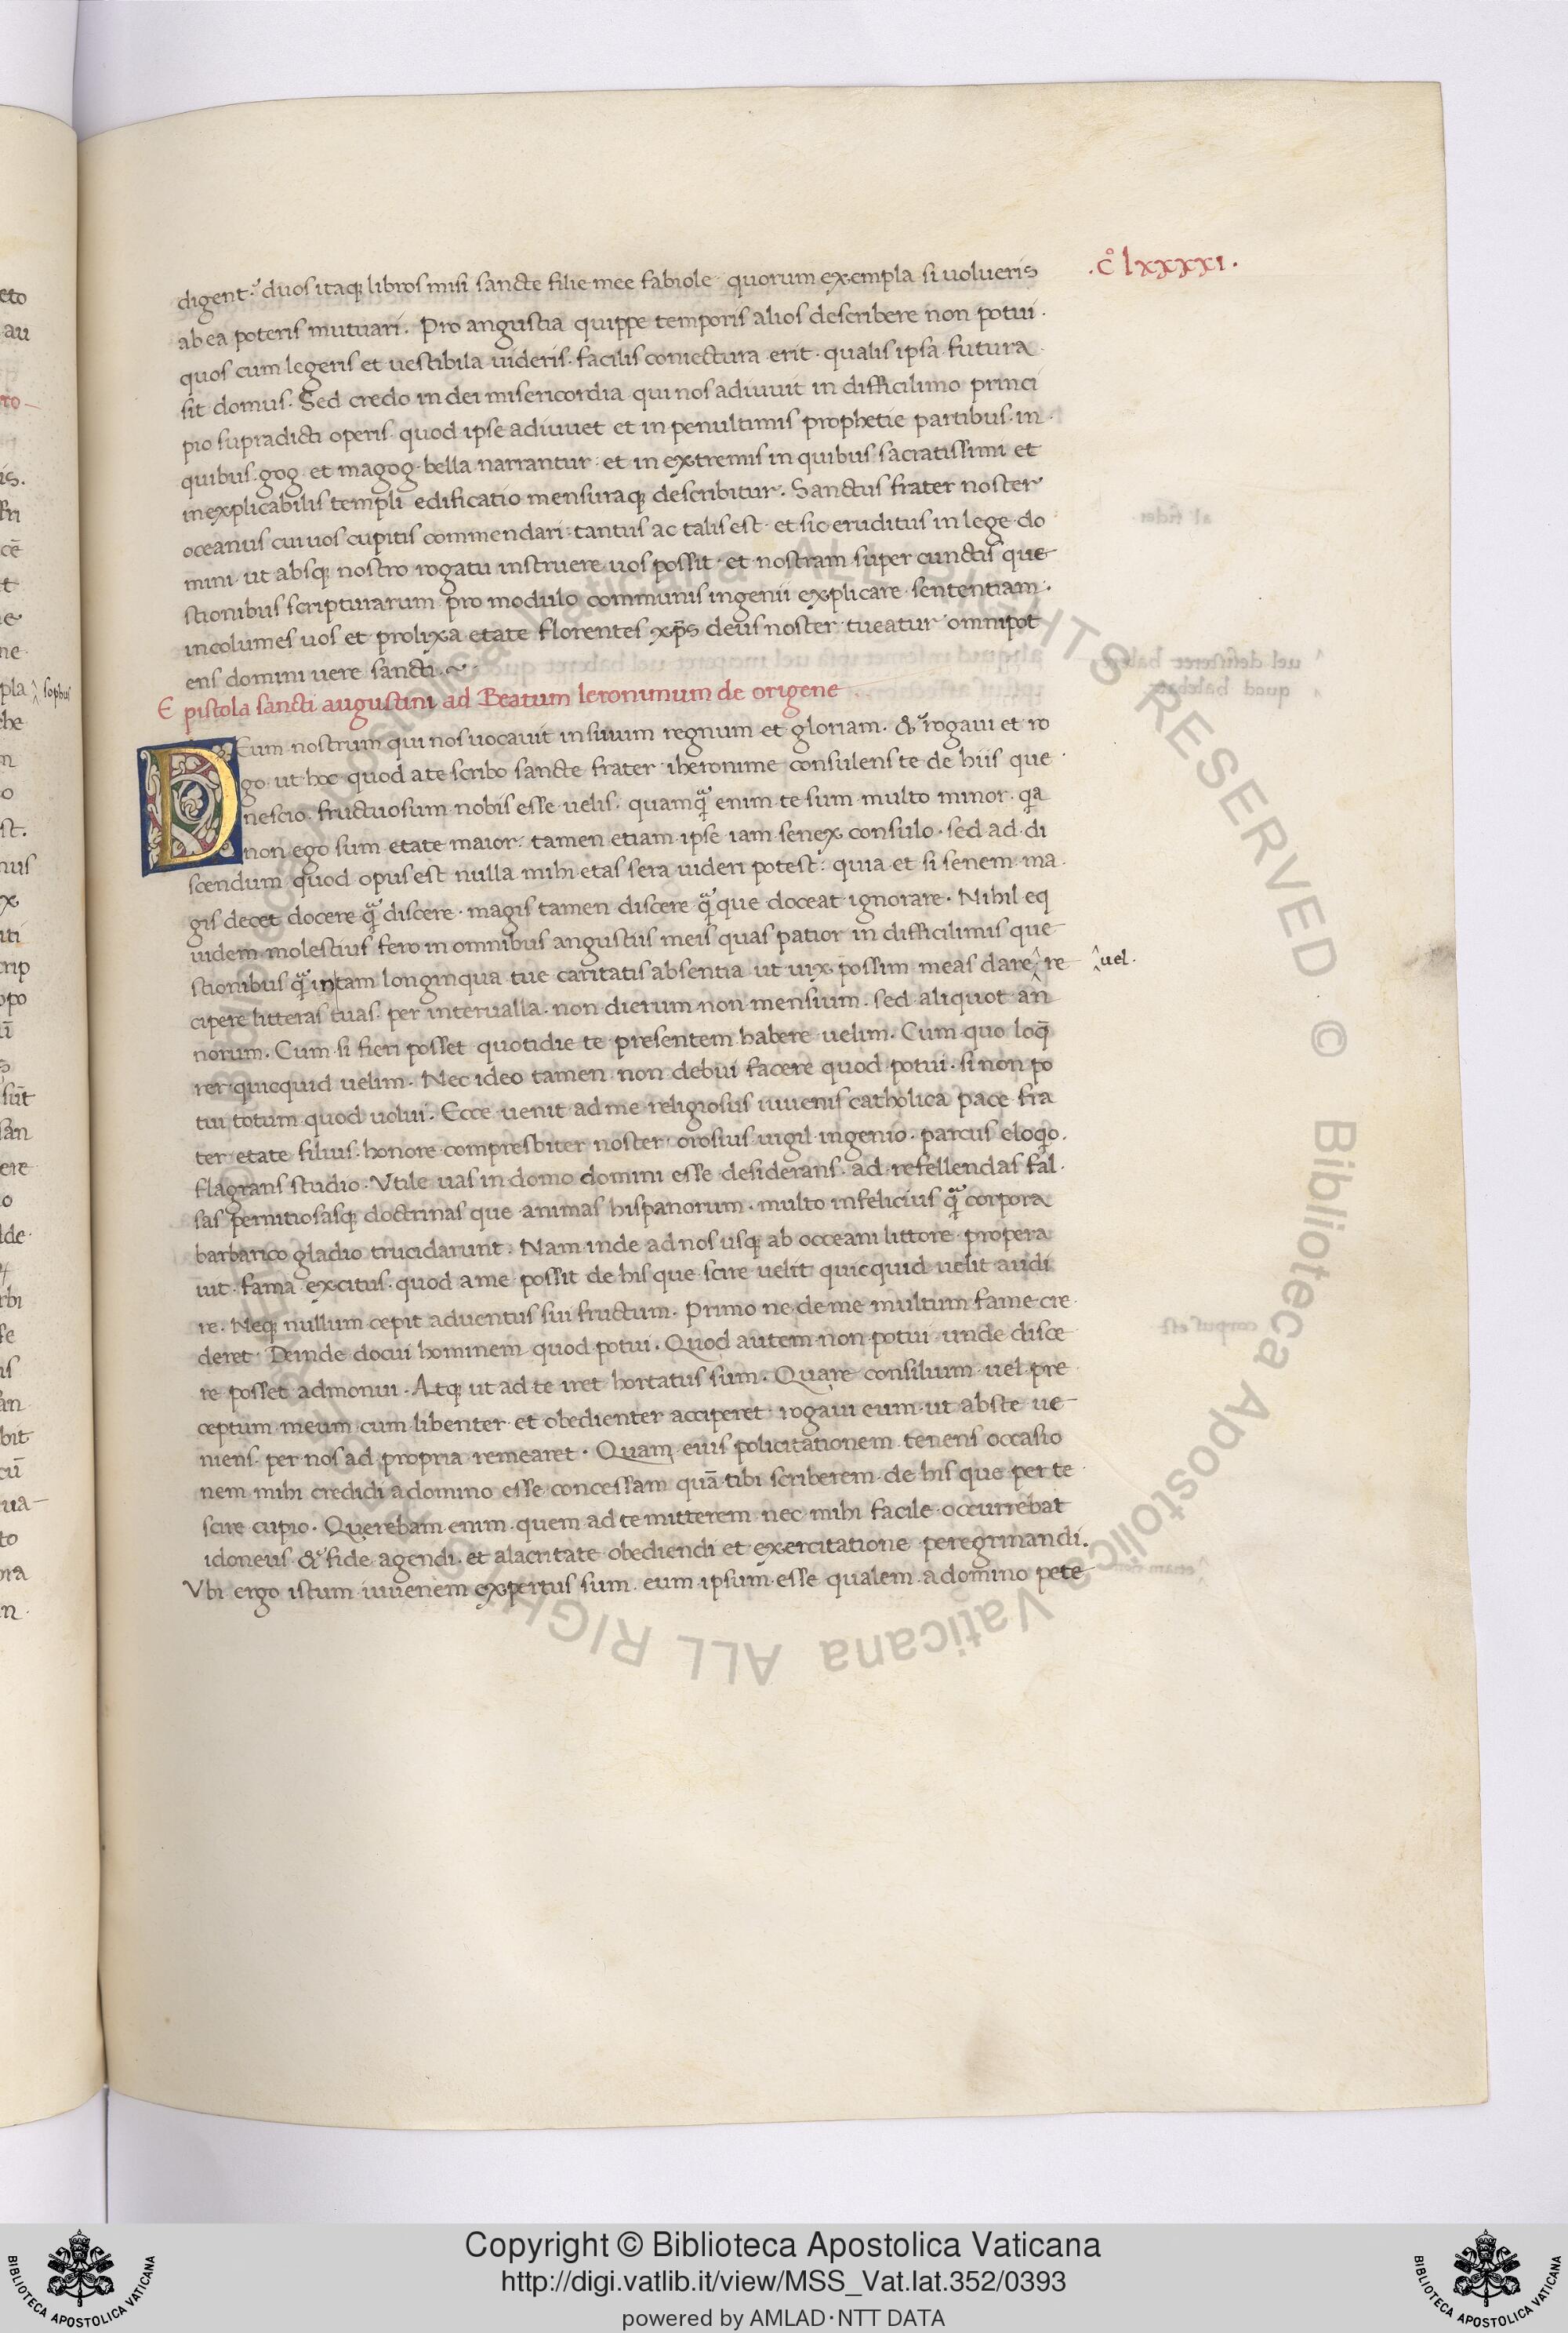 .c̊ lxxxxi.
digent: duos itaq; libros misi sancte filie mee fabiole quorum exempla si uolueris
ab ea poteris mutuari. Pro angustia quippe temporis alios describere non potui.
quos cum legeris et uestibila uideris. facilis coniectura erit. qualis ipsa futura
sit domus. Sed credo in dei misericordia qui nos adiuuit in difficilimo princi
pio supradicti operis. quod ipse adiuuet et in penultimis prophetie partibus. in
quibus. gog et magog bella narrantur. et in extremis in quibus sacratissimi et
inexplicabilis templi edificatio mensuraq; describitur. Sanctus frater noster
oceanus cui uos cupitis commendari. tantus ac talis est. et sic eruditus in lege do
mini. ut absq; nostro rogatu instruere uos possit. et nostram super cunctis que
stionibus scripturarum pro modulo communis ingenii explicare sententiam.
incolumes uos et prolixa etate florentes xp̄s deus noster tueatur omnipot
ens domini uere sancti.
Epistola sancti augustini ad Beatum Ieronimum de origene
DEum nostrum qui nos uocauit in suum regnum et gloriam. & rogaui et ro
go. ut hoc quod a te scribo sancte frater iheronime consulens te de hiis que
nescio. fructuosum nobis esse uelis. quamq̃ enim te sum multo minor. q̃a
non ego sum etate maior. tamen etiam ipse iam senex consulo. sed ad di
scendum quod opus est nulla mihi etas sera uideri potest: quia et si senem ma
gis decet docere q̃ discere. magis tamen discere q̃ que doceat ignorare. Nihil eq
uidem molestius fero in omnibus angustiis meis quas patior in difficilimis que
stionibus q̃ in tam longinqua tue caritatis absentia ut uix possim meas dare ^ re ^uel.
cipere litteras tuas. per interualla. non dierum non mensium. sed aliquot an
norum. Cum si fieri posset quotidie te presentem habere uelim. Cum quo loq̄
rer quicquid uelim. Nec ideo tamen non debui facere quod potui. si non po
tui totum quod uolui. Ecce uenit ad me religiosus iuuenis catholica pace fra
ter. etate filius. honore compresbiter noster orosius uigil ingenio. parcus eloq̇o.
flagrans studio. Vtile uas in domo domini esse desiderans. ad refellendas fal
sas pernitiosasq; doctrinas que animas hispanorum. multo infelicius q̃ corpora
barbarico gladio trucidarunt. Nam inde ad nos usq; ab occeani littore propera
uit. fama excitus. quod a me possit de his que scire uelit quicquid uelit audi
re. Neq; nullum cepit aduentus sui fructum. Primo ne de me multum fame cre
deret. Deinde docui hominem quod potui. Quod autem non potui unde disce
re posset admonui. Atq; ut ad te iret hortatus sum. Quare consilium uel pre
ceptum meum cum libenter et obedienter acciperet. rogaui eum ut abs te ue
niens. per nos ad propria remearet. Quam eius policitationem tenens occasio
nem mihi credidi a domino esse concessam quā tibi scriberem de his que per te
scire cupio. Querebam enim quem ad te mitterem nec mihi facile occurrebat
idoneus. & fide agendi. et alacritate obediendi et exercitatione peregrinandi.
Vbi ergo istum iuuenem expertus sum. eum ipsum esse qualem a domino pete
Copyright © Biblioteca Apostolica Vaticana
http://digi.vatlib.it/view/MSS_Vat.lat.352/0393
powered by AMLAD·NTT DATA